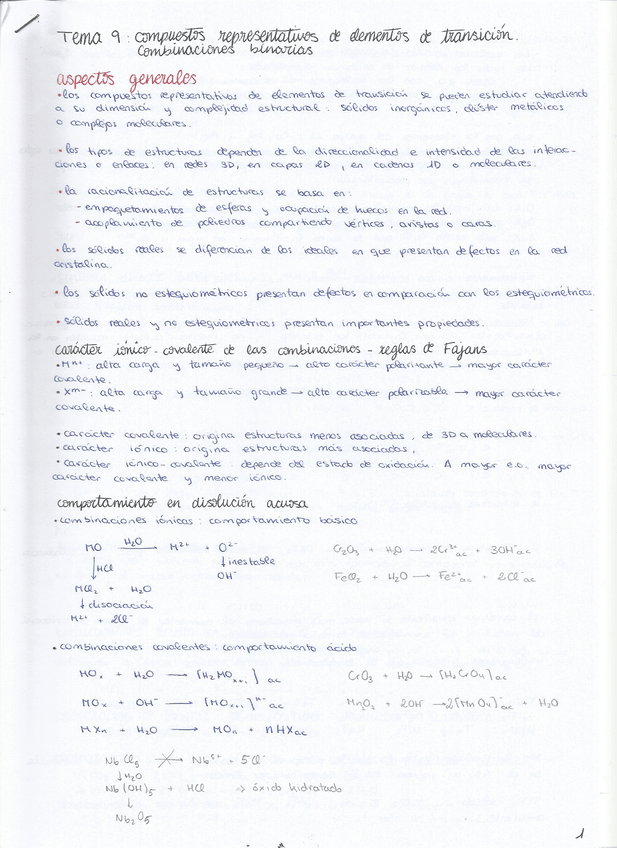 Tema 9: compuestos representativos de elementos de transición.
Combinaciones binarias
aspectos generales
• los compuestos representativos de elementos de transición se pueden estudiar atendiendo
a su dimensión y complejidad estructural: sólidos inorgánicos, clúster metálicos
o complejos moleculares.
• los tipos de estructuras dependen de la direccionalidad e intensidad de las interac-
ciones o enlaces: en redes 3D, en capas 2D, en cadenas 1D o moleculares.
• la racionalización de estructuras se basa en:
- empaquetamientos de esferas y ocupación de huecos en la red.
- acoplamiento de poliedros compartiendo vértices, aristas o caras.
• los sólidos reales se diferencian de los ideales en que presentan defectos en la red
cristalina.
• los sólidos no estequiométricos presentan defectos en comparación con los estequiométricos.
• sólidos reales y no estequiometricos presentan importantes propiedades.
carácter iónico-covalente de las combinaciones - reglas de Fajans
• Mⁿ⁺: alta carga y tamaño pequeño → alto carácter polarizante → mayor carácter
covalente.
• Xᵐ⁻: alta carga y tamaño grande → alto carácter polarizable → mayor carácter
covalente.
• carácter covalente: origina estructuras menos asociadas, de 3D a moleculares.
• carácter iónico: origina estructuras más asociadas,
• carácter iónico-covalente: depende del estado de oxidación. A mayor e.o. mayor
carácter covalente y menor iónico.
comportamiento en disolución acuosa
• combinaciones iónicas: comportamiento básico
MO H₂O → M²⁺ + O²⁻
Cr₂O₃ + H₂O → 2Cr³⁺ac + 3OH⁻ac
↓HCl ↓inestable
OH⁻
FeCl₂ + H₂O → Fe²⁺ac - 2Cl⁻ac
MCl₂ + H₂O
↓ disociación
M²⁺ + 2Cl⁻
• combinaciones covalentes: comportamiento ácido
MOₓ + H₂O → [H₂MOₓ₊₁] ac
CrO₃ + H₂O → [H₂CrO₄]ac
MOₓ + OH⁻ → [MOₓ₊₁]ⁿ⁻ ac
Mn₂O₇ + 2OH⁻ → 2[MnO₄]⁻ac + H₂O
MXn + H₂O → MOn + nHXac
NbCl₅ ↛ Nb⁵⁺ + 5Cl⁻
↓H₂O
Nb(OH)₅ + HCl → óxido hidratado
↓
Nb₂O₅
1